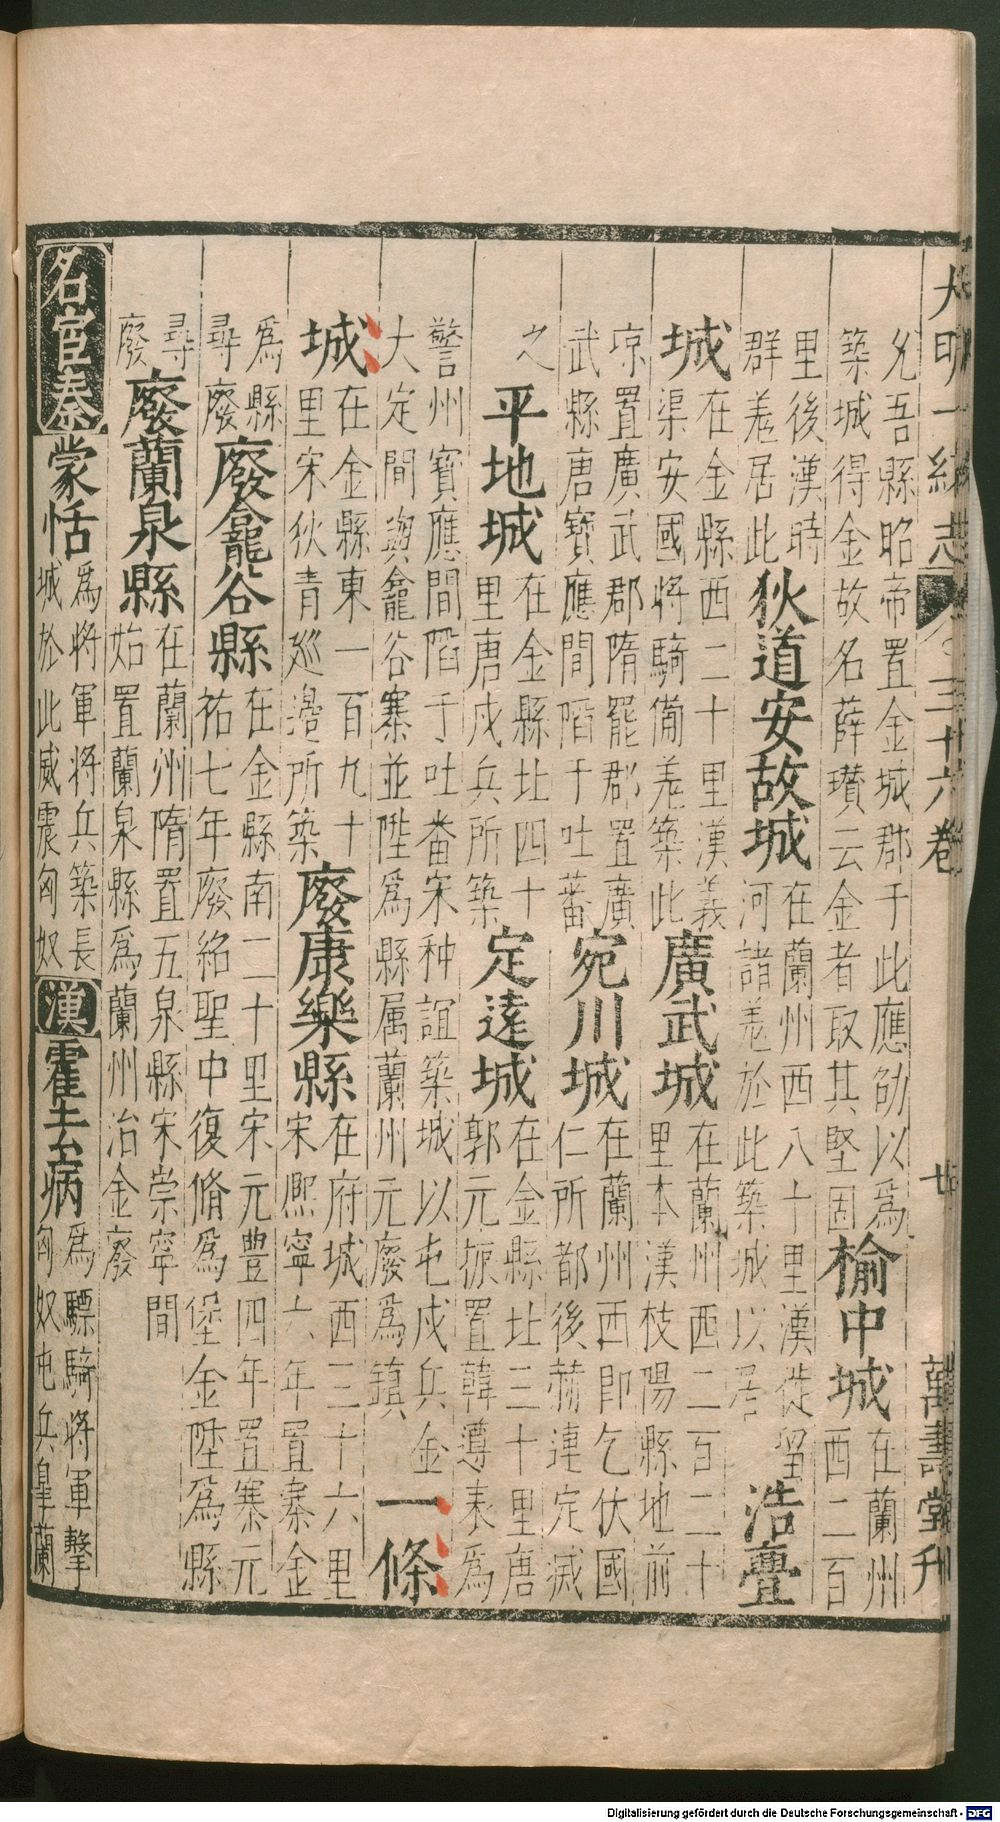 大明一統志 三十六卷 廿 萬壽堂刋
允吾縣昭帝置金城郡于此應劭以為
築城得金故名薛瓚云金者取其堅固
榆中城
在蘭州
西二百
里後漢時
群羗居此
狄道安故城
在蘭州西八十里漢徙留
河諸羗於此築城以居
浩亹
城
在金縣西二十里漢義
渠安國將騎備羗築此
廣武城
在蘭州西二百二十
里本漢枝陽縣地前
凉置廣武郡隋罷郡置廣
武縣唐寶應間䧟于吐蕃
宛川城
在蘭州西即乞伏國
仁所都後赫連定滅
之
平地城
在金縣北四十
里唐戍兵所築
定遠城
在金縣北三十里唐
郭元振置韓遵表為
警州寶應間䧟于吐蕃宋种誼築城以屯戍兵金
大定間與龕谷寨並陞為縣属蘭州元廢為鎮
一條
城
在金縣東一百九十
里宋狄青廵邉所築
廢康樂縣
在府城西三十六里
宋熈寧六年置寨金
為縣
尋廢
廢龕谷縣
在金縣南二十里宋元豊四年置寨元
祐七年廢紹聖中復脩為堡金陞為縣
尋
廢
廢蘭泉縣
在蘭州隋置五泉縣宋崇寧間
始置蘭泉縣為蘭州治金廢
名宦秦
蒙恬
為將軍將兵築長
城於此威震匈奴
漢
霍去病
為驃騎將軍擊
匈奴屯兵皐蘭
Digitalisierung gefördert durch die Deutsche Forschungsgemeinschaft - DFG